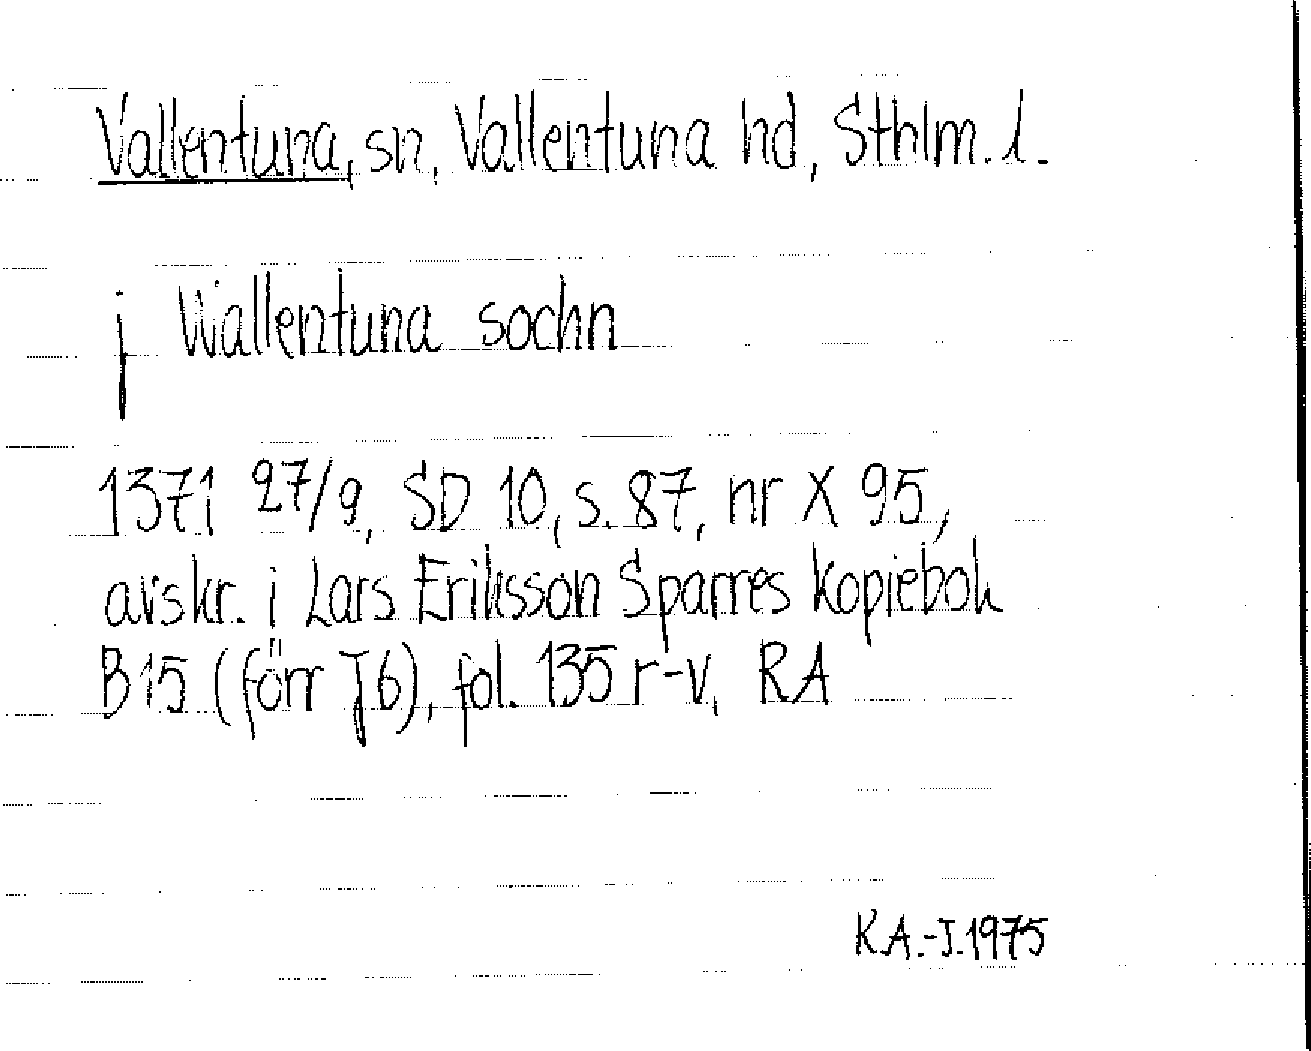 Vallentuna, sn, Vallentuna hd, Sthlm. l.
j Wallentuna sochn
1371 27/9, SD 10, s. 87, nr X 95,
avskr. i Lars Eriksson Sparres kopiebok
B 15 (förr J 6), fol. 135 r-v, RA
K.A.-J. 1975